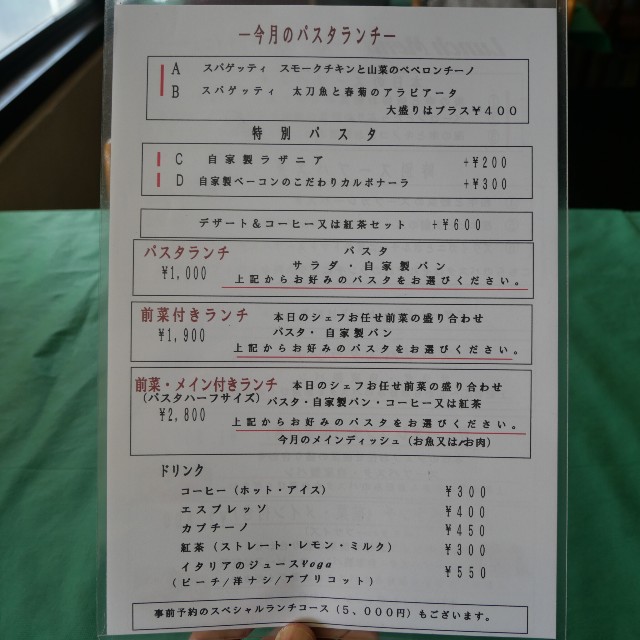 ―今月のパスタランチ―
A スパゲッティ スモークチキンと山菜のペペロンチーノ
B スパゲッティ 太刀魚と春菊のアラビアータ
大盛りはプラス¥400
特別パスタ
C 自家製ラザニア +¥200
D 自家製ベーコンのこだわりカルボナーラ +¥300
デザート&コーヒー又は紅茶セット +¥600
パスタランチ パスタ
¥1,000 サラダ・自家製パン
上記からお好みのパスタをお選びください。
前菜付きランチ 本日のシェフお任せ前菜の盛り合わせ
¥1,900 パスタ・自家製パン
上記からお好みのパスタをお選びください。
前菜・メイン付きランチ 本日のシェフお任せ前菜の盛り合わせ
(パスタハーフサイズ) パスタ・自家製パン・コーヒー又は紅茶
¥2,800 上記からお好みのパスタをお選びください。
今月のメインディッシュ(お魚又は/お肉)
ドリンク
コーヒー(ホット・アイス) ¥300
エスプレッソ ¥400
カプチーノ ¥450
紅茶(ストレート・レモン・ミルク) ¥300
イタリアのジュースYoga ¥550
(ピーチ/洋ナシ/アプリコット)
事前予約のスペシャルランチコース(5、000円)もございます。